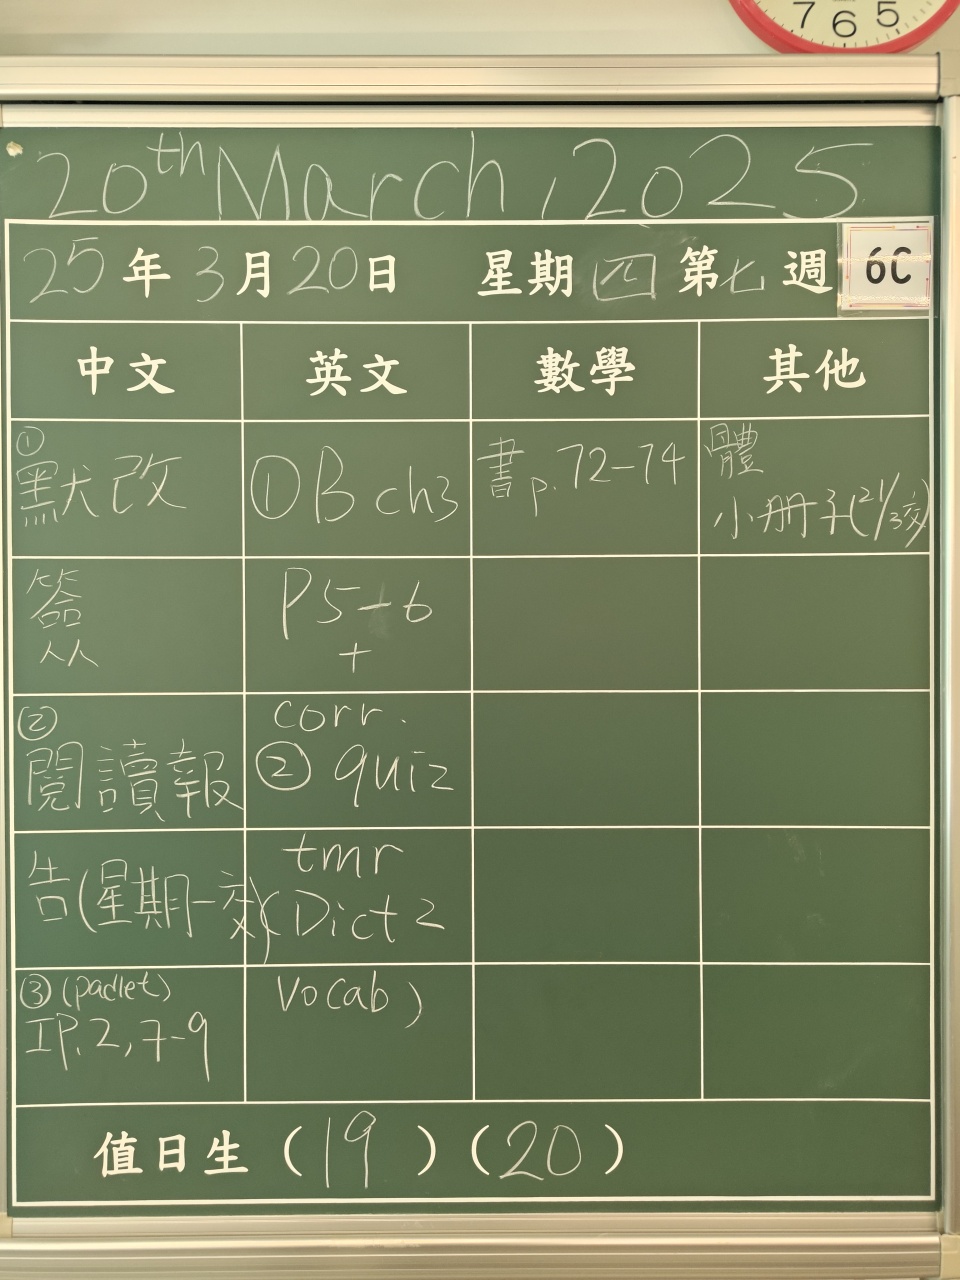 7 6 5
20th March, 2025
25年3月20日 星期四 第七週 6C
中文 英文 數學 其他
① 默改
簽
② 閱讀報
告(星期一交)
③ (padlet)
IP.2,7-9
① B ch3
P5-6
+
corr.
② quiz
tmr
(Dict 2
vocab)
書p.72-74
體
小冊子(21/3交)
值日生 (19) (20)